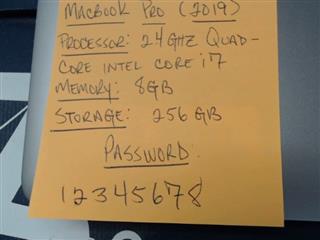 MACBOOK PRO (2019)
PROCESSOR: 24 GHZ QUAD-
CORE INTEL CORE i7
MEMORY: 8GB
STORAGE: 256 GB
PASSWORD
12345678